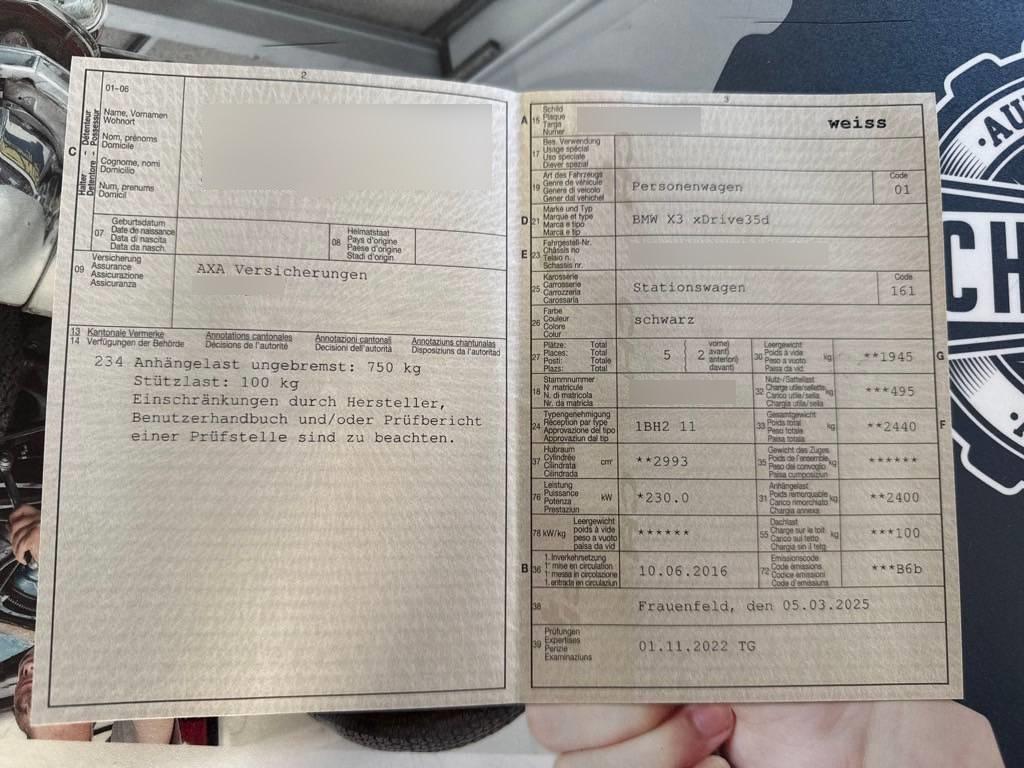 2
01-06
C
Halter - Détenteur
Detentore - Possessur
Name, Vornamen
Wohnort
Nom, prénoms
Domicile
Cognome, nomi
Domicilio
Num, prenums
Domicil
07
Geburtsdatum
Date de naissance
Data di nascita
Data da nasch.
08
Heimatstaat
Pays d'origine
Paese d'origine
Stadi d'origin
09
Versicherung
Assurance
Assicurazione
Assicuranza
AXA Versicherungen
13 Kantonale Vermerke
14 Verfügungen der Behörde
Annotations cantonales
Décisions de l'autorité
Annotazioni cantonali
Decisioni dell'autorità
Annotaziuns chantunalas
Disposiziuns da l'autoritad
234 Anhängelast ungebremst: 750 kg
Stützlast: 100 kg
Einschränkungen durch Hersteller,
Benutzerhandbuch und/oder Prüfbericht
einer Prüfstelle sind zu beachten.
3
A 15
Schild
Plaque
Targa
Numer
weiss
17
Bes. Verwendung
Usage spécial
Uso speciale
Diever spezial
19
Art des Fahrzeugs
Genre de véhicule
Genere di veicolo
Gener dal vehichel
Personenwagen
Code
01
D 21
Marke und Typ
Marque et type
Marca e tipo
Marca e tip
BMW X3 xDrive35d
E 23
Fahrgestell-Nr.
Châssis no
Telaio n.
Schassis nr.
25
Karosserie
Carrosserie
Carrozzeria
Carossaria
Stationswagen
Code
161
26
Farbe
Couleur
Colore
Colur
schwarz
27
Plätze: Total
Places: Total
Posti: Totale
Plazs: Total
5 { 2
vorne)
avant)
anteriori)
davant)
30
Leergewicht
Poids à vide
Peso a vuoto
Paisa da vid
kg
**1945
G
18
Stammnummer
N matricule
N. di matricola
Nr. da matricla
32
Nutz-/Sattellast
Charge utile/sellette
Carico utile/sella
Chargia utila/sella
kg
***495
24
Typengenehmigung
Réception par type
Approvazione del tipo
Approvaziun dal tip
1BH2 11
33
Gesamtgewicht
Poids total
Peso totale
Paisa totala
kg
**2440
F
37
Hubraum
Cylindrée
Cilindrata
Cilindrada
cm³
**2993
35
Gewicht des Zuges
Poids de l'ensemble
Peso del convoglio
Paisa cumposiziun
kg
******
76
Leistung
Puissance
Potenza
Prestaziun
kW
*230.0
31
Anhängelast
Poids remorquable
Carico rimorchiato
Chargia annexa
kg
**2400
78 kW/kg
Leergewicht
poids à vide
peso a vuoto
paisa da vid
******
55
Dachlast
Charge sur le toit
Carico sul tetto
Chargia sin il tetg
kg
***100
B 36
1. Inverkehrsetzung
1re mise en circulation
1a messa in circolazione
1. entrada en circulaziun
10.06.2016
72
Emissionscode
Code émissions
Codice emissioni
Code d'emissiuns
***B6b
38
Frauenfeld, den 05.03.2025
39
Prüfungen
Expertises
Perizie
Examinaziuns
01.11.2022 TG
·AU
CH